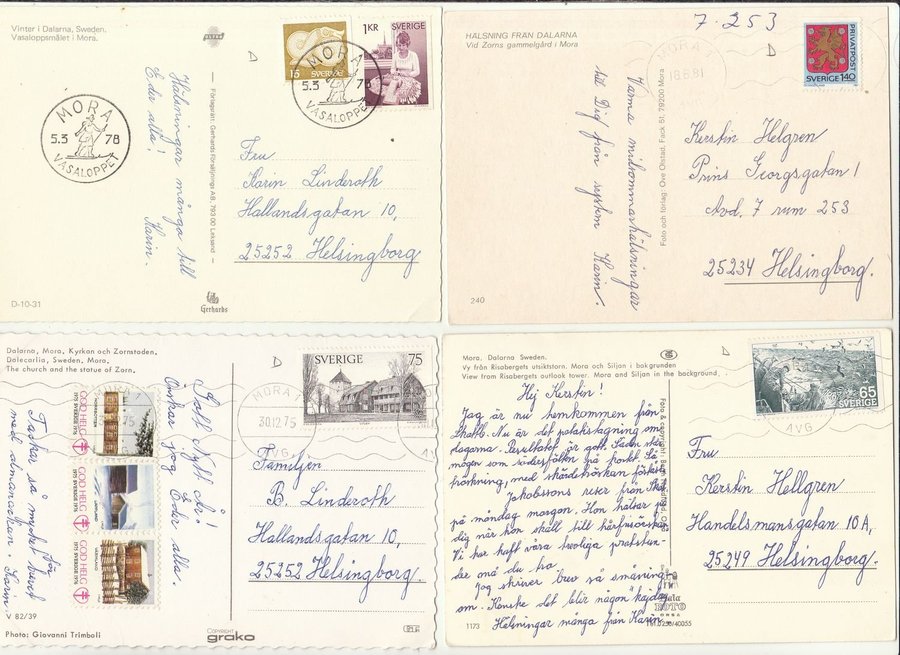 Vinter i Dalarna, Sweden.
Vasaloppsmålet i Mora.
15
SVERIGE
1KR SVERIGE
MORA
5.3 78
VASALOPPET
MORA
5.3 78
VASALOPPET
Hälsningar många till
Eder alla!
Karin.
Förlagsplats: Gerhards Försäljnings AB, 793 00 Leksand
Fru
Karin Linderoth
Hallandsgatan 10,
25252 Helsingborg
D-10-31
Gerhards
HÄLSNING FRÅN DALARNA
Vid Zorns gammelgård i Mora
7-253
MORA
18.6.81
PRIVATPOST
SVERIGE 1.40
Varma midsommarhälsningar
till Dig från Karin.
Foto och förlag: Ove Olstad, Fack 51, 79200 Mora
Kerstin Helgren
Prins Georgsgatan 1
Avd, 7 rum 253
25234 Helsingborg.
240
Dalarna, Mora. Kyrkan och Zornstaden.
Dalecarlia, Sweden. Mora.
The church and the statue of Zorn.
SVERIGE 75
MORA 1
30.12.75
AVG
GOD HELG
1975 SVERIGE 1976
GOD HELG
1975 SVERIGE 1976
GOD HELG
1975 SVERIGE 1976
Gott Nytt år!
önskar jag Eder alla.
Tackar så mycket för
med almanackan. Karin
Familjen
B. Linderoth
Hallandsgatan 10,
25252 Helsingborg.
V 82/39
Photo: Giovanni Trimboli
COPYRIGHT
grako
Mora. Dalarna Sweden.
Vy från Risabergets utsiktstorn. Mora och Siljan i bakgrunden
View from Risabergets outlook tower. Mora and Siljan in the background
65
SVERIGE
AVG
Hej Kerstin!
Jag är nu hemkommen från
Nu är det potatistagning om
dagarna. Resultatet är gott. Säden står
mogen
Jakobssons reser från
på måndag morgon. Hon hälsar
dig när hon skall till
Vi har haft våra trevliga
Jag skriver brev så småning
om. Kanske det blir någon
Hälsningar många från Karin.
Fru
Kerstin Hellgren
Handelsmansgatan 10A,
25249 Helsingborg.
FOTO
1173